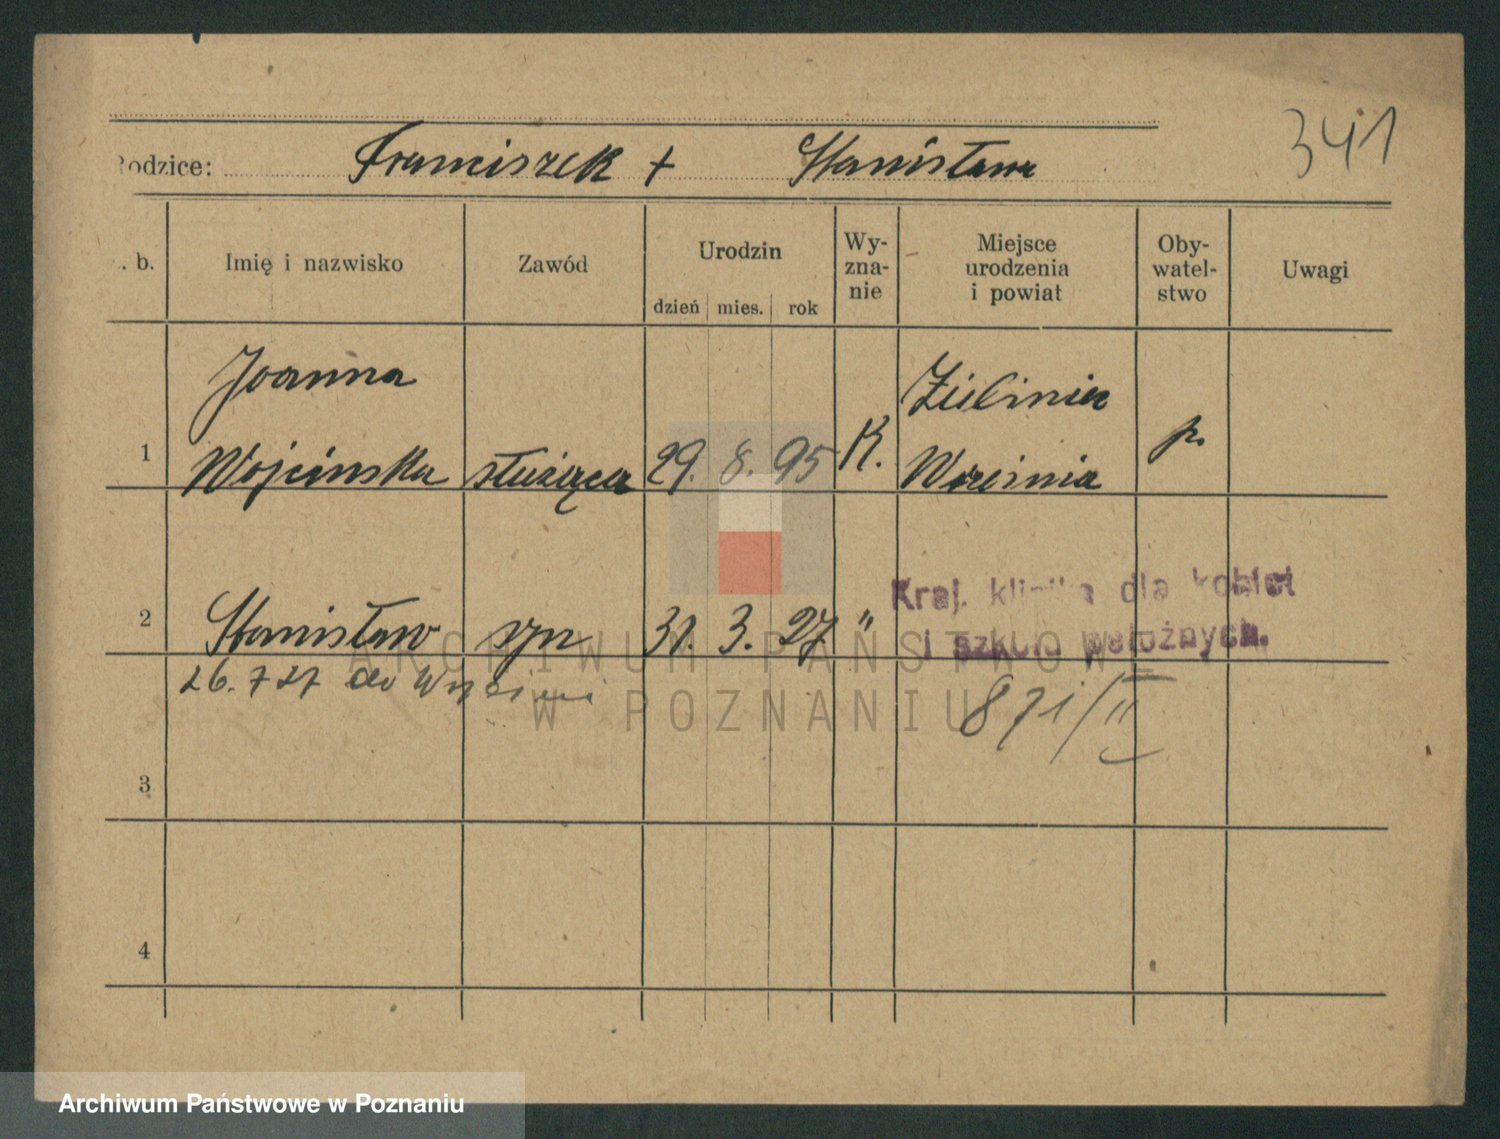 341
Rodzice: Franciszek + Stanisława
. b. Imię i nazwisko Zawód Urodzin dzień mies. rok Wy-zna-nie Miejsce urodzenia i powiat Oby-watel-stwo Uwagi
Joanna Zieliniec
1 Wojcinska służąca 29. 8. 95 K. Wrzesnia p.
Kraj. klinika dla kobiet
2 Stanisław syn 31. 3. 27 "
i szkoła położnych.
26.7 27 do
871/II
3
4
ARCHIWUM PAŃSTWOWE
W POZNANIU
Archiwum Państwowe w Poznaniu